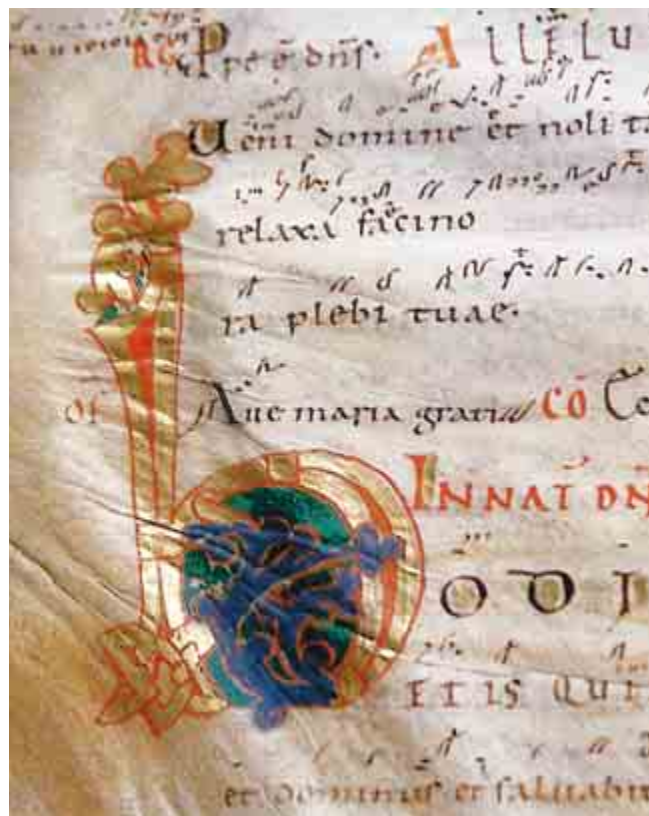 RG Ppe ē dn̄s· ALLELU
Ueni domine et noli ta
relaxa facino
ra plebi tuae·
OF Aue maria gratia CŌ
IN NAT DN
hODI
ETIS QUI
et dominus et saluabit